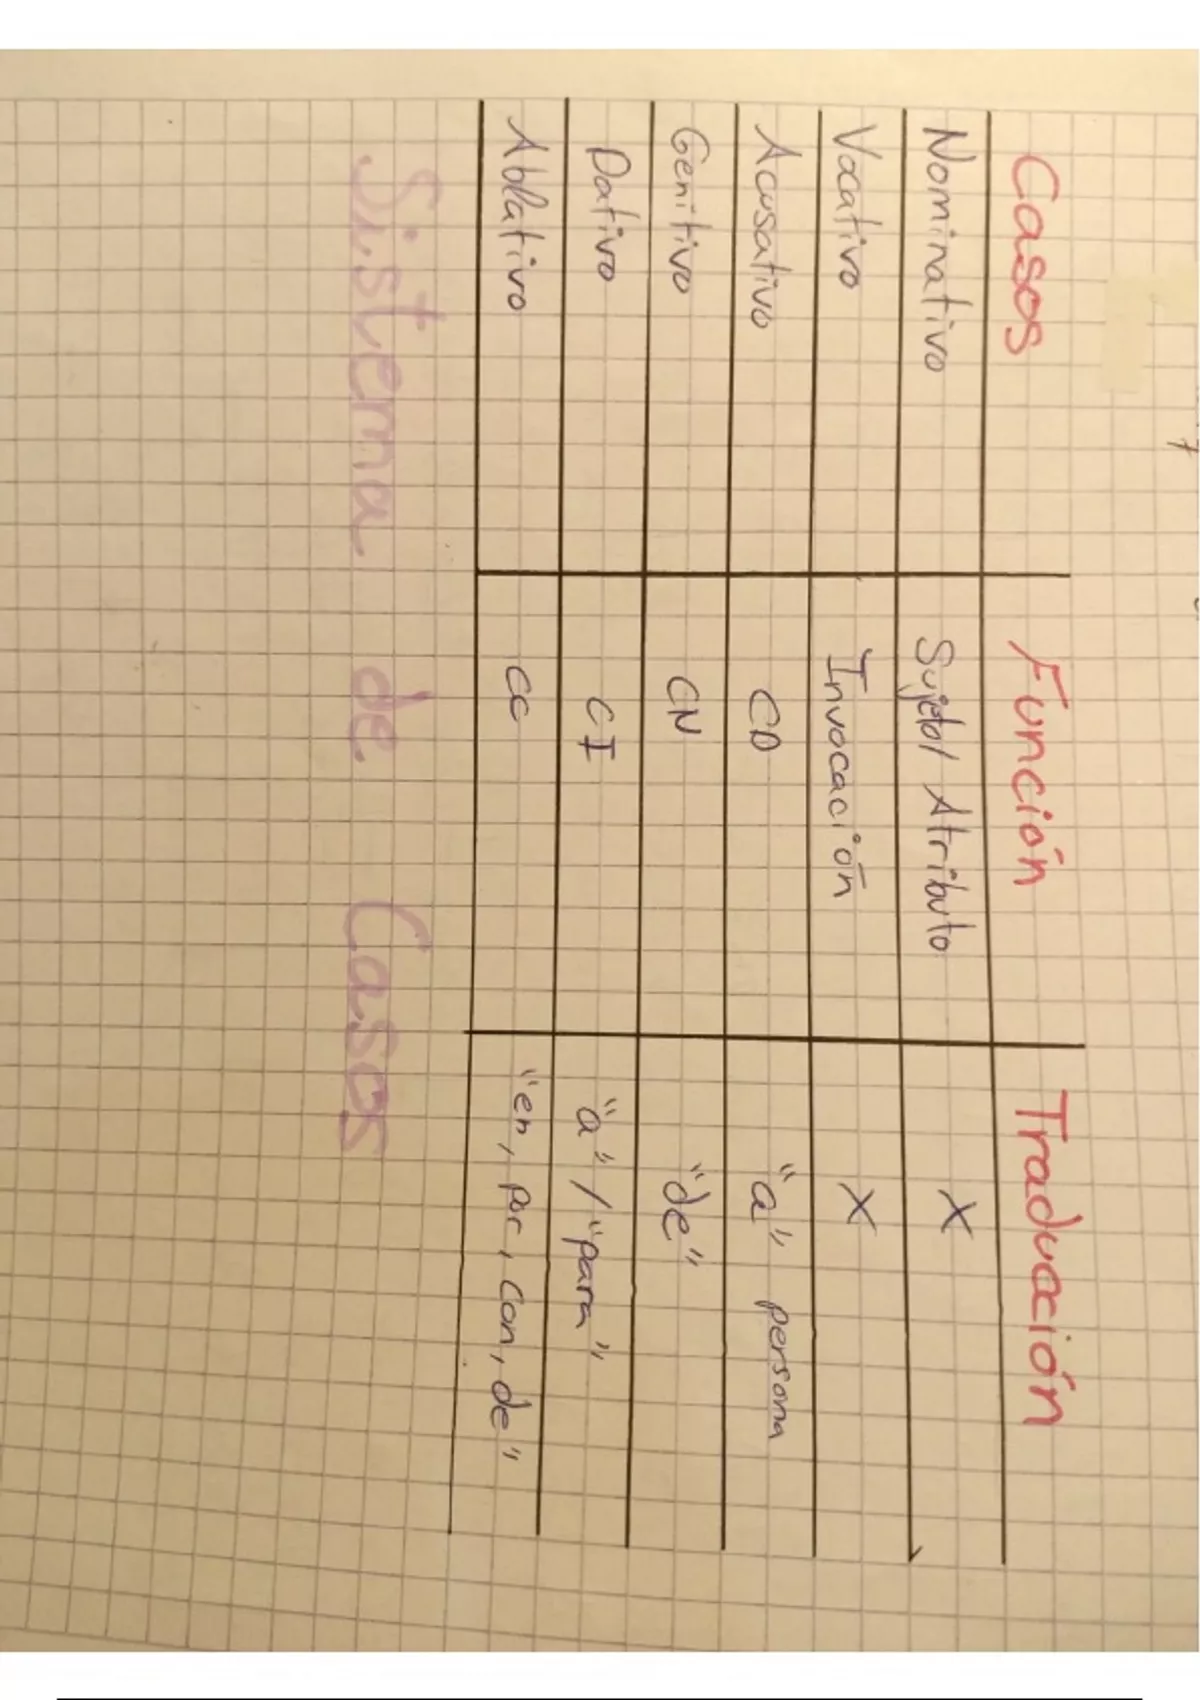 Casos Función Traducción
Nominativo Sujeto/ Atributo X
Vocativo Invocación X
Acusativo CD "a" persona
Genitivo CN "de"
Dativo CI "a" / "para"
Ablativo CC "en, por, con, de"
Sistema de Casos